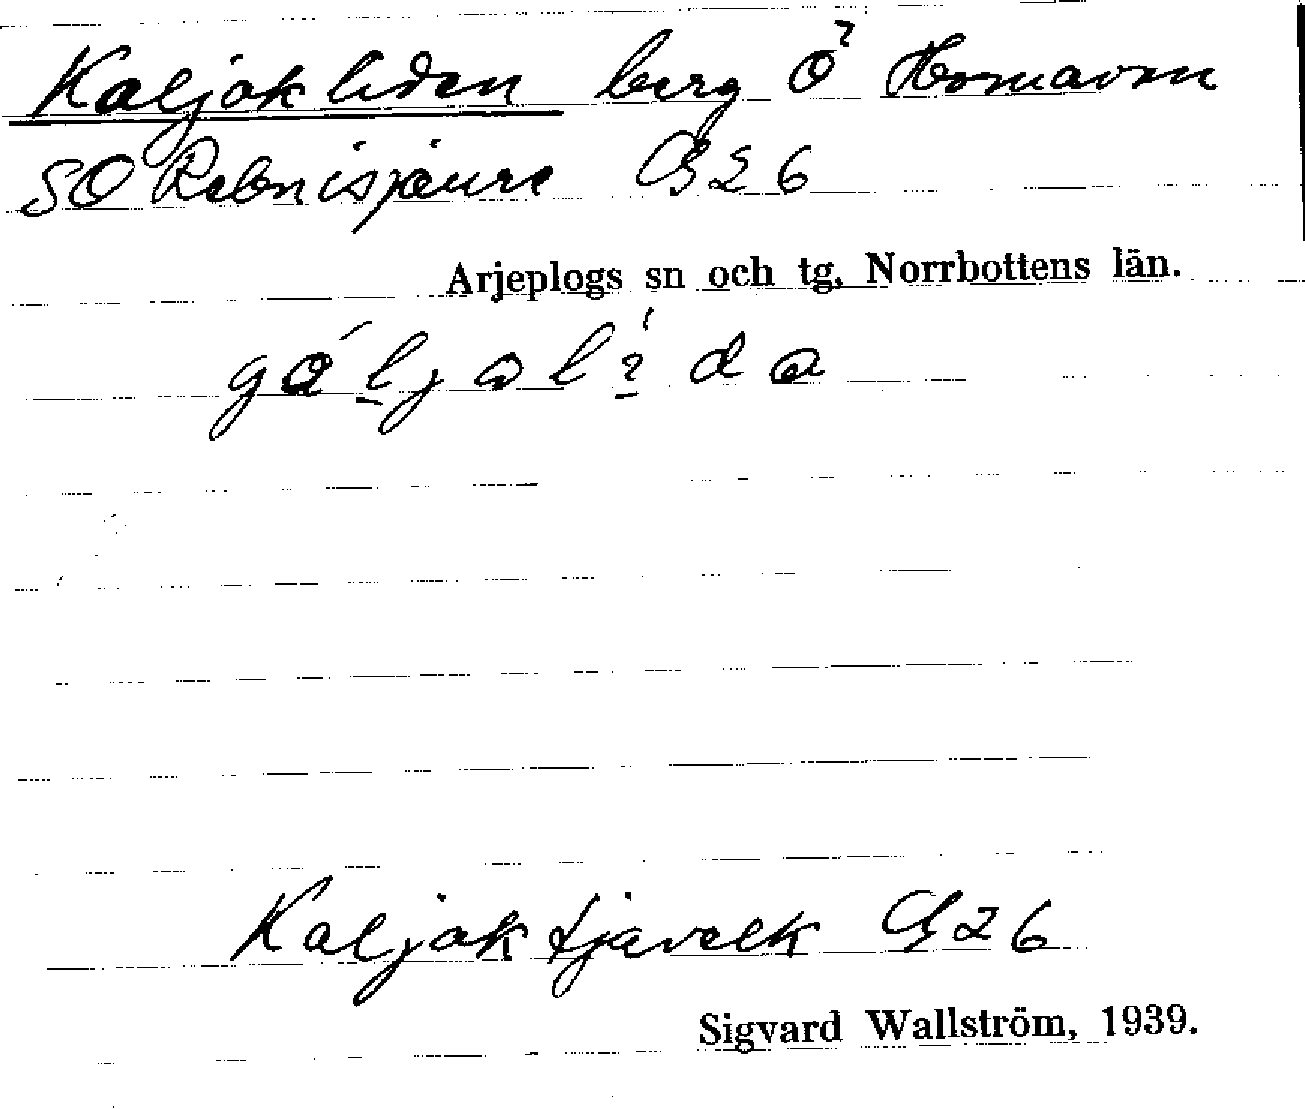 Kaljokliden berg Ö Hornavan
SO Rebnisjaure G26
Arjeplogs sn och tg, Norrbottens län.
Kaljoktjavelk G26
Sigvard Wallström, 1939.